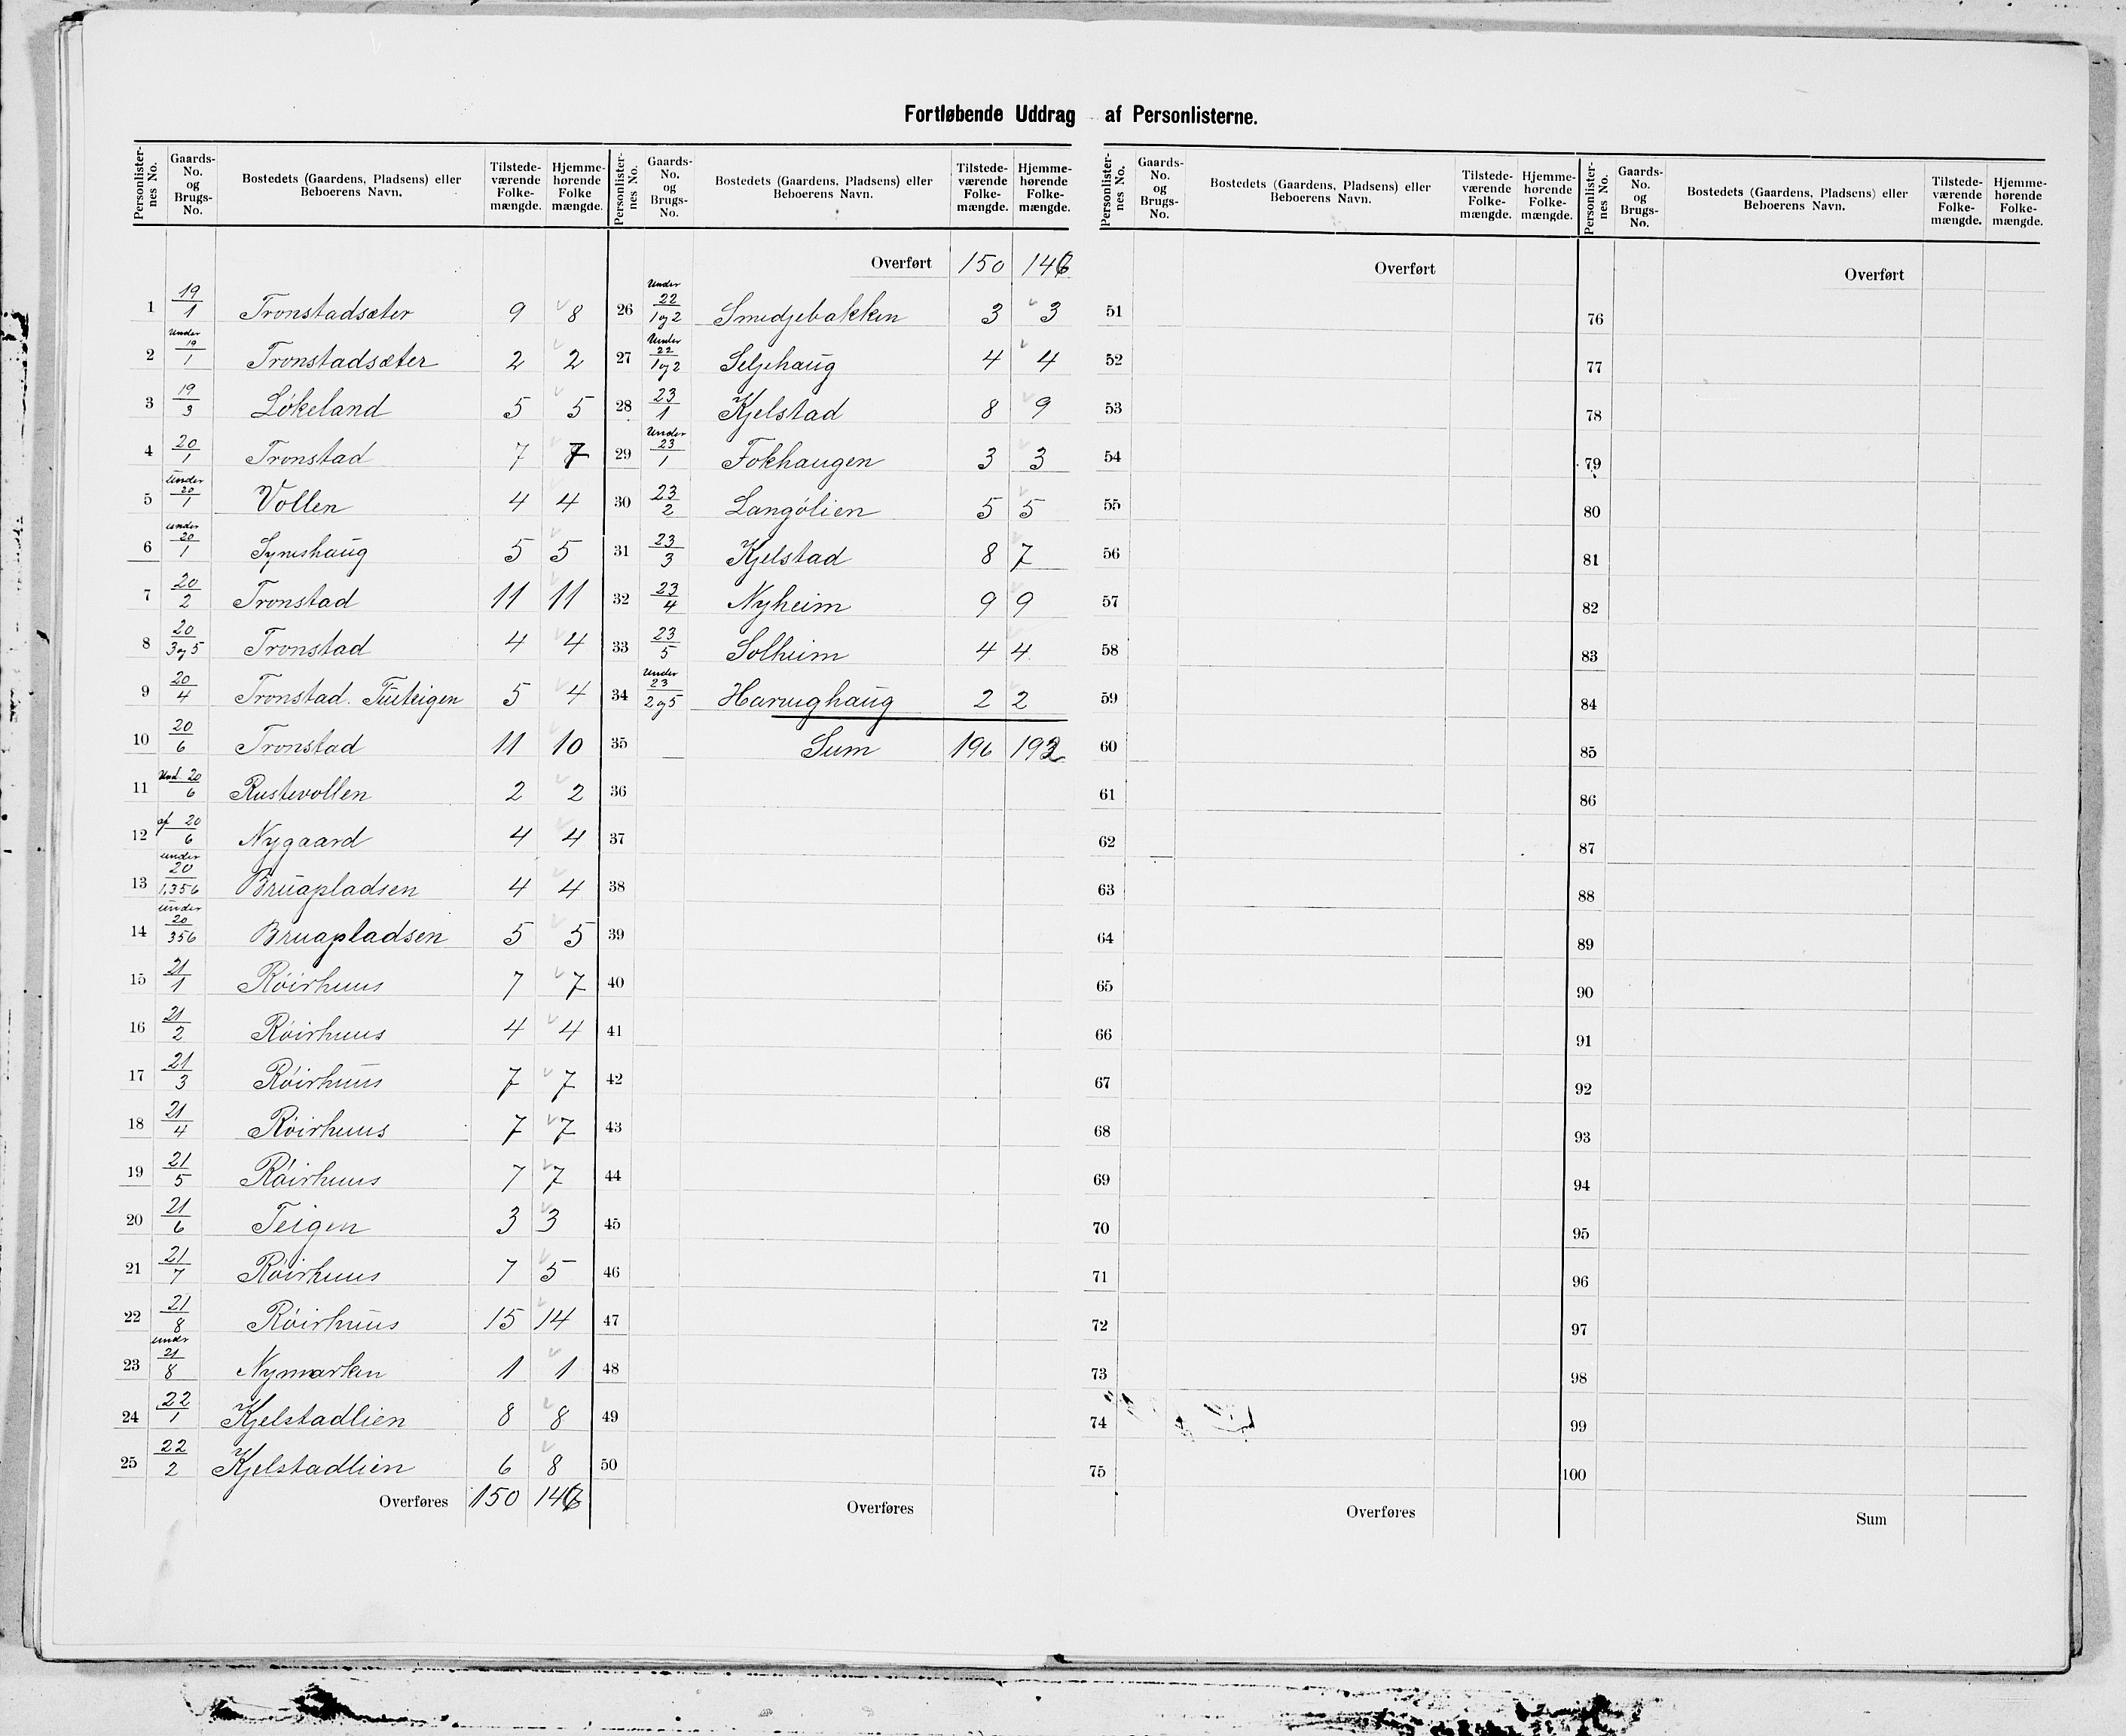 Fortløbende Uddrag af Personlisterne.
Personlisternes No. Gaards-No. og Brugs-No. Bostedets (Gaardens, Pladsens) eller Beboerens Navn. Tilstedeværende Folkemængde. Hjemmehørende Folkemængde.
1 19/1 Tronstadsæter 9 8
2 Under 19/1 Tronstadsæter 2 2
3 19/3 Løkeland 5 5
4 20/1 Tronstad 7 7
5 Under 20/1 Vollen 4 4
6 under 20/1 Syneshaug 5 5
7 20/2 Tronstad 11 11
8 20/3 og 5 Tronstad 4 4
9 20/4 Tronstad. Tuteigen 5 4
10 20/6 Tronstad 11 10
11 Und 20/6 Rustevollen 2 2
12 af 20/6 Nygaard 4 4
13 under 20/1,356 Bruapladsen 4 4
14 under 20/356 Bruapladsen 5 5
15 21/1 Röirhuus 7 7
16 21/2 Röirhuus 4 4
17 21/3 Röirhuus 7 7
18 21/4 Röirhuus 7 7
19 21/5 Röirhuus 7 7
20 21/6 Teigen 3 3
21 21/7 Röirhuus 7 5
22 21/8 Röirhuus 15 14
23 under 21/8 Nymarken 1 1
24 22/1 Kjelstadlien 8 8
25 22/2 Kjelstadlien 6 8
Overføres 150 146
Personlisternes No. Gaards-No. og Brugs-No. Bostedets (Gaardens, Pladsens) eller Beboerens Navn. Tilstedeværende Folkemængde. Hjemmehørende Folkemængde.
Overført 150 146
26 Under 22/1 og 2 Smedjebakken 3 3
27 Under 22/1 og 2 Seljehaug 4 4
28 23/1 Kjelstad 8 9
29 Under 23/1 Fokhaugen 3 3
30 23/2 Langölien 5 5
31 23/3 Kjelstad 8 7
32 23/4 Nyheim 9 9
33 23/5 Solheim 4 4
34 Under 23/2 og 5 Harughaug 2 2
35 Sum 196 192
36
37
38
39
40
41
42
43
44
45
46
47
48
49
50
Overføres
Personlisternes No. Gaards-No. og Brugs-No. Bostedets (Gaardens, Pladsens) eller Beboerens Navn. Tilstedeværende Folkemængde. Hjemmehørende Folkemængde.
Overført
51
52
53
54
55
56
57
58
59
60
61
62
63
64
65
66
67
68
69
70
71
72
73
74
75
Overføres
Personlisternes No. Gaards-No. og Brugs-No. Bostedets (Gaardens, Pladsens) eller Beboerens Navn. Tilstedeværende Folkemængde. Hjemmehørende Folkemængde.
Overført
76
77
78
79
80
81
82
83
84
85
86
87
88
89
90
91
92
93
94
95
96
97
98
99
100
Sum